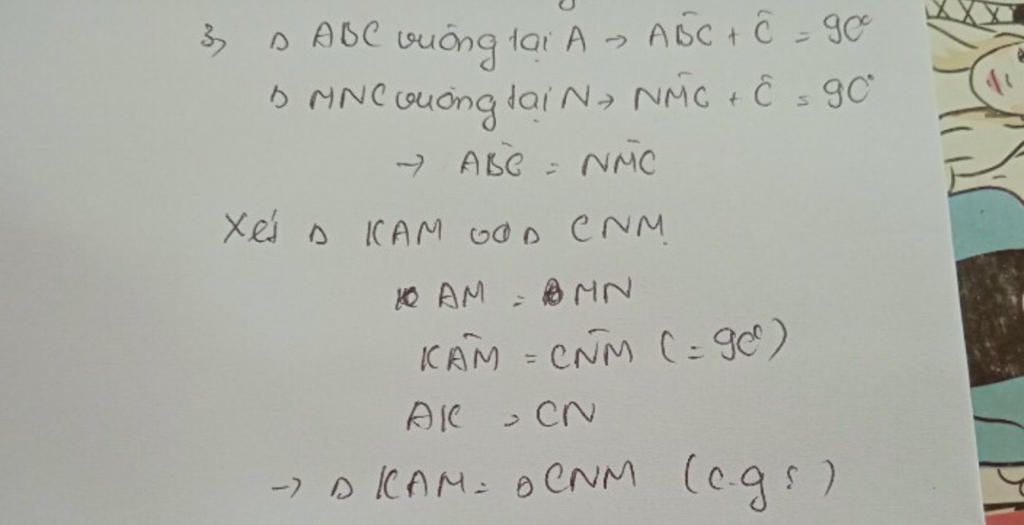 3, Δ ABC vuông tại A → ABC + Ĉ = 90°
Δ MNC vuông tại N → NMC + Ĉ = 90°
→ ABC = NMC
Xét Δ KAM và Δ CNM
AM = MN
KAM = CNM (= 90°)
AK = CN
→ Δ KAM = Δ CNM (c.g.c)